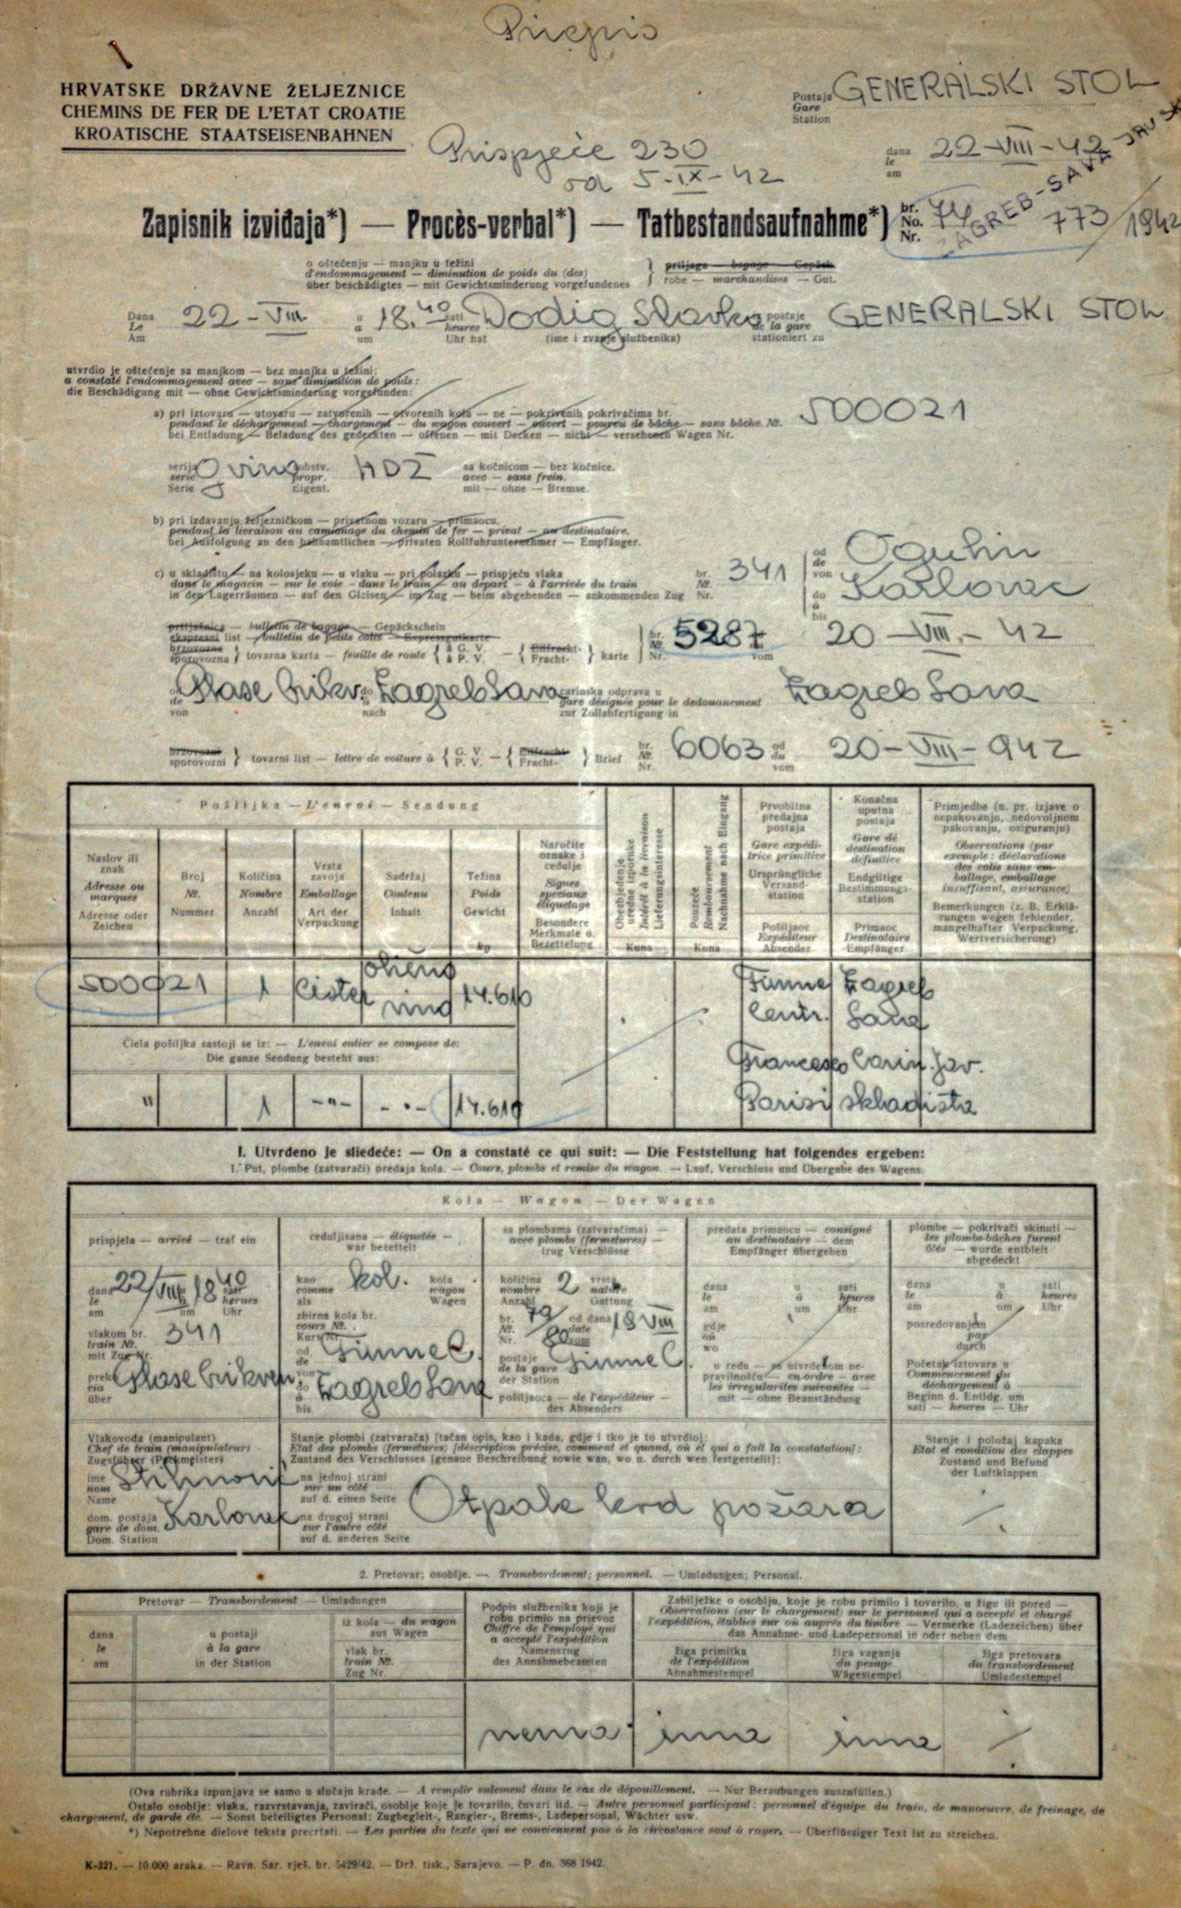 Priepis
HRVATSKE DRŽAVNE ŽELJEZNICE
CHEMINS DE FER DE L'ETAT CROATIE
KROATISCHE STAATSEISENBAHNEN
Postaja
Gare
Station
GENERALSKI STOL
Prispjeće 230
od 5-IX-42
dana
le
am
22-VIII-42
ZAGREB-SAVA JAV SK
Zapisnik izviđaja*) — Procès-verbal*) — Tatbestandsaufnahme*)
br.
No.
Nr.
74
773/1942
o oštećenju — manjku u težini
d'endommagement — diminution de poids du (des)
über beschädigtes — mit Gewichtsminderung vorgefundenes
prtljage — bagage — Gepäck
robe — marchandises — Gut.
Dana
Le
Am
22-VIII
u
à
um
18.40
sati
heures
Uhr hat
Dodig Slavko
(ime i zvanje službenika)
postaje
de la gare
stationiert zu
GENERALSKI STOL
utvrdio je oštećenje sa manjkom — bez manjka u težini:
a constaté l'endommagement avec — sans diminution de poids:
die Beschädigung mit — ohne Gewichtsminderung vorgefunden:
a) pri iztovaru — utovaru — zatvorenih — otvorenih kola — ne — pokrivenih pokrivačima br.
pendant le déchargement — chargement — du wagon couvert — ouvert — pourvu de bâche — sans bâche. №.
bei Entladung — Beladung des gedeckten — offenen — mit Decken — nicht — versehenen Wagen Nr.
500021
serija
serie
Serie
vlastv.
propr.
Eigent.
HDŽ
sa kočnicom — bez kočnice.
avec — sans frein.
mit — ohne — Bremse.
b) pri izdavanju željezničkom — privatnom vozaru — primaocu.
pendant la livraison au camionage du chemin de fer — privat — au destinataire.
bei Ausfolgung an den bahnamtlichen — privaten Rollfuhrunternehmer — Empfänger.
c) u skladištu — na kolosjeku — u vlaku — pri polazku — prispjeću vlaka
dans le magasin — sur le voie — dans le train — au départ — à l'arrivée du train
in den Lagerräumen — auf den Gleisen — im Zug — beim abgehenden — ankommenden Zug
br.
№.
Nr.
341
od
de
von
Ogulin
do
à
bis
Karlovac
prtljažnica — bulletin de bagage — Gepäckschein
ekspresni list — bulletin de petits colis — Expressgutkarte
brzovozna
sporovozna
tovarna karta — feuille de route
à G. V.
à P. V.
Eilfracht-
Fracht-
karte
br.
№.
Nr.
5287
vom
20-VIII-42
od
de
von
Plase Crikv.
nach
Zagreb Sava
carinska odprava u
gare désignée pour le dedouanement
zur Zollabfertigung in
Zagreb Sava
brzovozni
sporovozni
tovarni list — lettre de voiture à
G. V.
P. V.
Eilfracht-
Fracht-
Brief
br.
№.
Nr.
6063
od
du
vom
20-VIII-942
Pošiljka — L'envoi — Sendung
Naslov ili
znak
Adresse ou
marques
Adresse oder
Zeichen
Broj
№.
Nummer
Količina
Nombre
Anzahl
Vrsta
zavoja
Emballage
Art der
Verpackung
Sadržaj
Contenu
Inhalt
Težina
Poids
Gewicht
kg
Naročite
oznake i
cedulje
Signes
speciaux
étiquetage
Besondere
Merkmale u.
Bezettelung
Obezbjeđenje
uredne isporuke
Intérêt à la livraison
Lieferungsinteresse
Kuna
Pouzeće
Remboursement
Nachnahme nach Eingang
Kuna
Prvobitna
predajna
postaja
Gare expédi-
trice primitive
Ursprüngliche
Versand-
station
Pošiljaoc
Expéditeur
Absender
Konačna
uputna
postaja
Gare de
destination
définitive
Endgiltige
Bestimmungs-
station
Primaoc
Destinataire
Empfänger
Primjedbe (n. pr. izjave o
nepakovanju, nedovoljnom
pakovanju, osiguranju)
Observations (par
exemple: déclarations
des colis sans em-
ballage, emballage
insuffisant, assurance)
Bemerkungen (z. B. Erklä-
rungen wegen fehlender,
mangelhafter Verpackung,
Wertversicherung)
500021
1
14.610
Fiume
Centr.
Zagreb
Sava
Francesco
Parisi
Carin. Jav.
skladišta
Ciela pošiljka sastoji se iz: — L'envoi entier se compose de:
Die ganze Sendung besteht aus:
"
1
-"-
-"-
14.610
I. Utvrđeno je sliedeće: — On a constaté ce qui suit: — Die Feststellung hat folgendes ergeben:
1. Put, plombe (zatvarači) predaja kola. — Cours, plombs et remise du wagon. — Lauf, Verschluss und Übergabe des Wagens.
Kola — Wagon — Der Wagen
prispjela — arrivé — traf ein
dana
le
am
22/VIII
18 40
sati
heures
Uhr
vlakom br.
train №.
mit Zug Nr.
341
preko
via
über
Plase Crikven.
ceduljisana — étiquetée —
war bezettelt
kao
comme
als
kol.
kola
wagon
Wagen
zbirna kola br.
cours №.
Kurs Nr.
od
de
von
Fiume C.
do
à
bis
Zagreb Sava
sa plombama (zatvaračima) —
avec plombs (fermetures) —
trug Verschlüsse
količina
nombre
Anzahl
2
vrsta
nature
Gattung
br.
№.
Nr.
79/80
od dana
date
vom
18 VIII
postaje
de la gare
der Station
Fiume C.
pošiljaoca — de l'expéditeur —
des Absenders
predata primaocu — consigné
au destinataire — dem
Empfänger übergeben
dana
le
am
u
à
um
sati
heures
Uhr
gdje
où
wo
u redu — sa utvrđenom ne-
pravilnošću — en ordre — avec
les irregularites suivantes —
mit — ohne Beanständung
plombe — pokrivači skinuti —
les plombs-bâches furent
ôtés — wurde entbleit
abgedeckt
dana
le
am
u
à
um
sati
heures
Uhr
posredovanjem
par
durch
Početak iztovara u
Commencement du
déchargement à
Beginn d. Entldg. um
sati — heures — Uhr
Vlakovođa (manipulant)
Chef de train (manipulateur)
Zugsführer (Packmeister)
ime
nom
Name
dom. postaja
gare de dom.
Dom. Station
Karlovac
Stanje plombi (zatvarača) [tačan opis, kao i kada, gdje i tko je to utvrdio]:
Etat des plombs (fermetures) [déscription précise, comment et quand, où et qui a fait la constatation]:
Zustand des Verschlusses [genaue Beschreibung sowie wan, wo u. durch wen festgestellt]:
na jednoj strani
sur un côté
auf d. einen Seite
na drugoj strani
sur l'autre côté
auf d. anderen Seite
Otpale kod požara
Stanje i položaj kapaka
Etat et condition des clappes
Zustand und Befund
der Luftklappen
2. Pretovar; osoblje. — Transbordement; personnel. — Umladungen; Personal.
Pretovar — Transbordement — Umladungen
dana
le
am
u postaji
à la gare
in der Station
iz kola — du wagon
aus Wagen
vlak br.
train №.
Zug Nr.
Podpis službenika koji je
robu primio na prievoz
Chiffre de l'employé qui
a accepté l'expédition
Namenszug
des Annahmebeamten
Zabilježke o osoblju, koje je robu primilo i tovarilo, u žigu ili pored —
Observations (sur le chargement) sur le personnel qui a accepté et chargé
l'expédition, établies sur où auprès du timbre — Vermerke (Ladezeichen) über
das Annahme- und Ladepersonal in oder neben dem
žiga primitka
de l'expédition
Annahmestempel
žiga vaganja
du pesage
Wägestempel
žiga pretovara
du transbordement
Umladestempel
nema
ima
ima
(Ova rubrika izpunjava se samo u slučaju krađe. — A remplir seulement dans le cas de dépouillement. — Nur Beraubungen auszufüllen.)
Ostalo osoblje: vlaka, razvrstavanja, zavirači, osoblje koje je tovarilo, čuvari itd. — Autre personnel participant: personnel d'équipe du train, de manoeuvre, de freinage, de
chargement, de garde etc. — Sonst beteiligtes Personal: Zugbegleit-, Rangier-, Brems-, Ladepersonal, Wächter usw.
*) Nepotrebne dielove teksta precrtati. — Les parties du texte qui ne conviennent pas à la circostance sont à rayer. — Überflüssiger Text ist zu streichen.
K-321. — 10.000 araka. — Ravn. Sar. rješ. br. 5429/42. — Drž. tisk., Sarajevo. — P. dn. 368 1942.